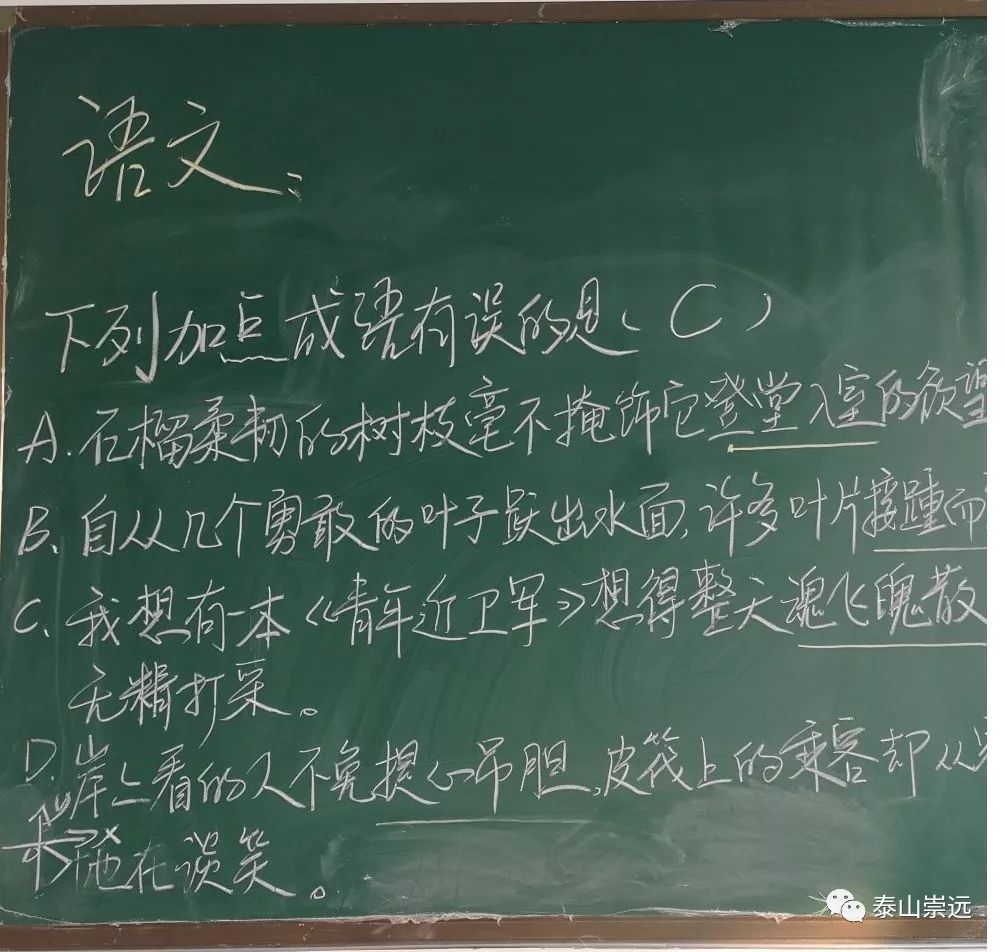 语文:
下列加点成语有误的是（C）
A.石榴柔韧的树枝毫不掩饰它登堂入室的欲望
B.自从几个勇敢的叶子跃出水面,许多叶片接踵而
C.我想有一本《青年近卫军》想得整天魂飞魄散
无精打采。
D.岸上看的人不免提心吊胆,皮筏上的乘客却从
地在谈笑。
泰山崇远